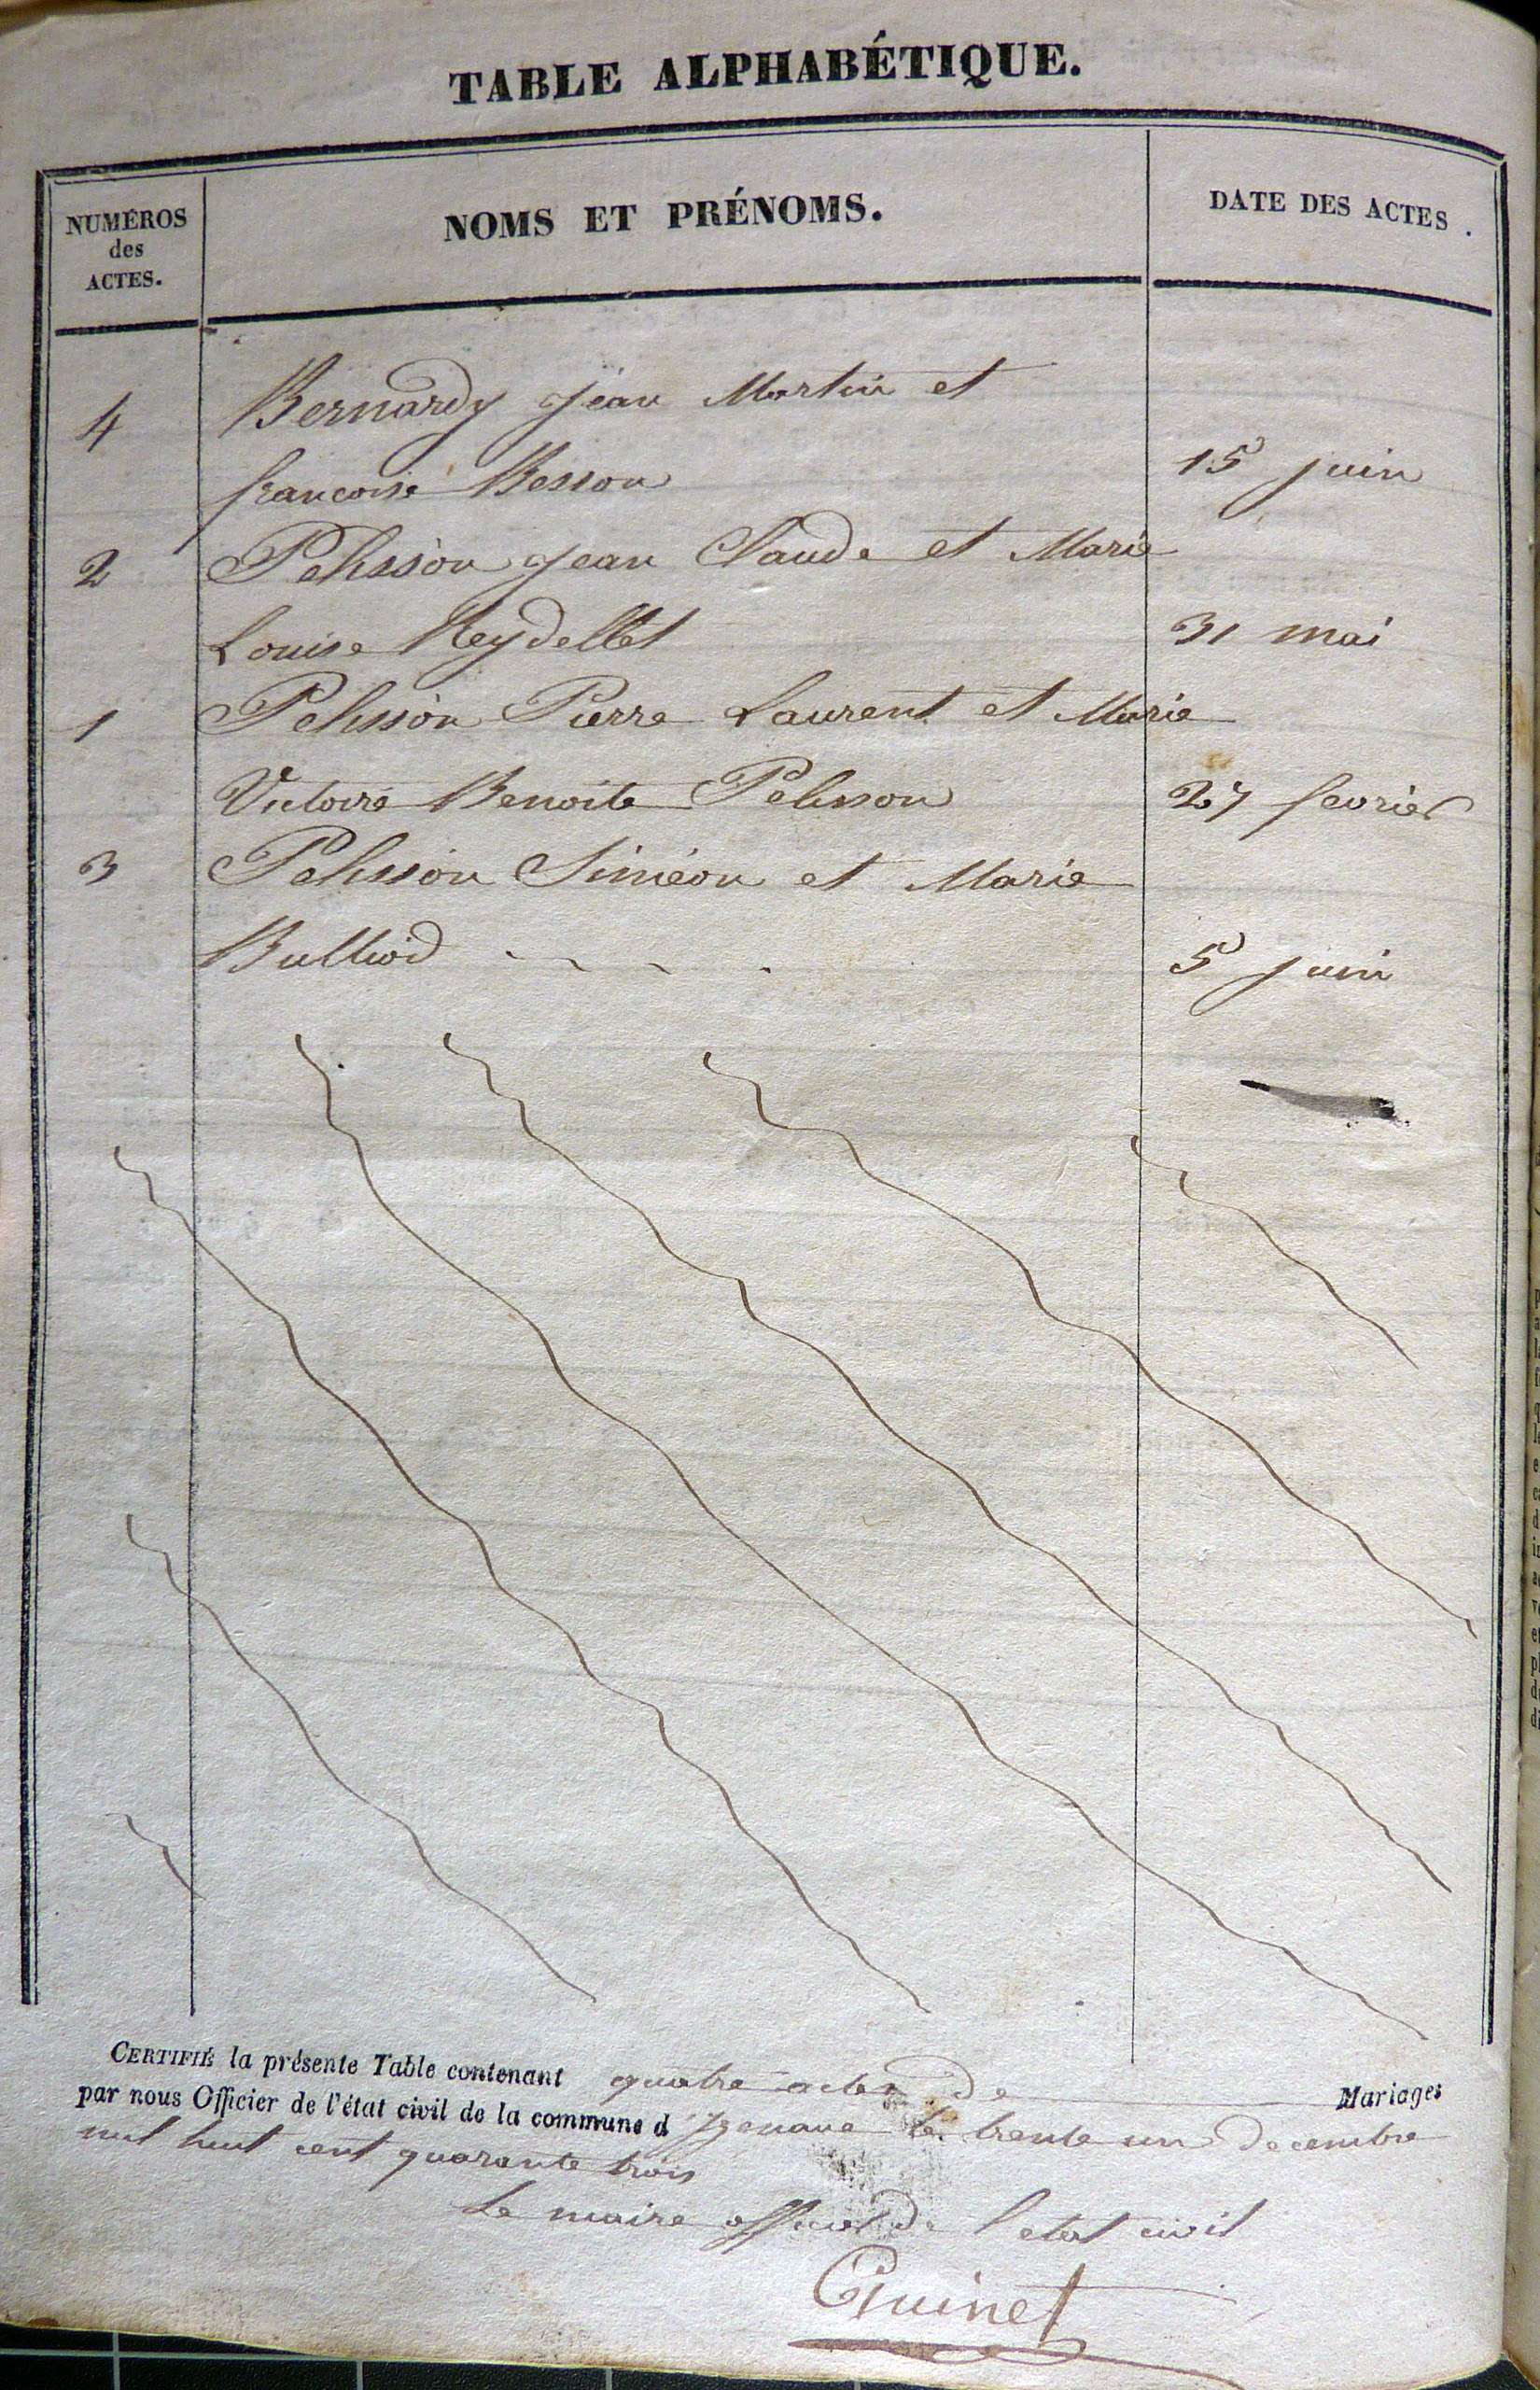 TABLE ALPHABÉTIQUE.
NUMÉROS
des
ACTES.
NOMS ET PRÉNOMS.
DATE DES ACTES.
4 Bernardy jean Martin et
francoise Besson 15 juin
2 Pelisson jean Claude et Marie
Louise Reydellet 31 mai
1 Pelisson Pierre Laurent et Marie
Victoire Benoite Pelisson 27 fevrier
3 Pelisson Siméon et Marie
Bulliod - - - - 5 juin
CERTIFIÉ la présente Table contenant quatre actes de Mariages
par nous Officier de l'état civil de la commune d'Izenave le trente un decembre
mil huit cent quarante trois
Le maire officier de l'etat civil
Guinet